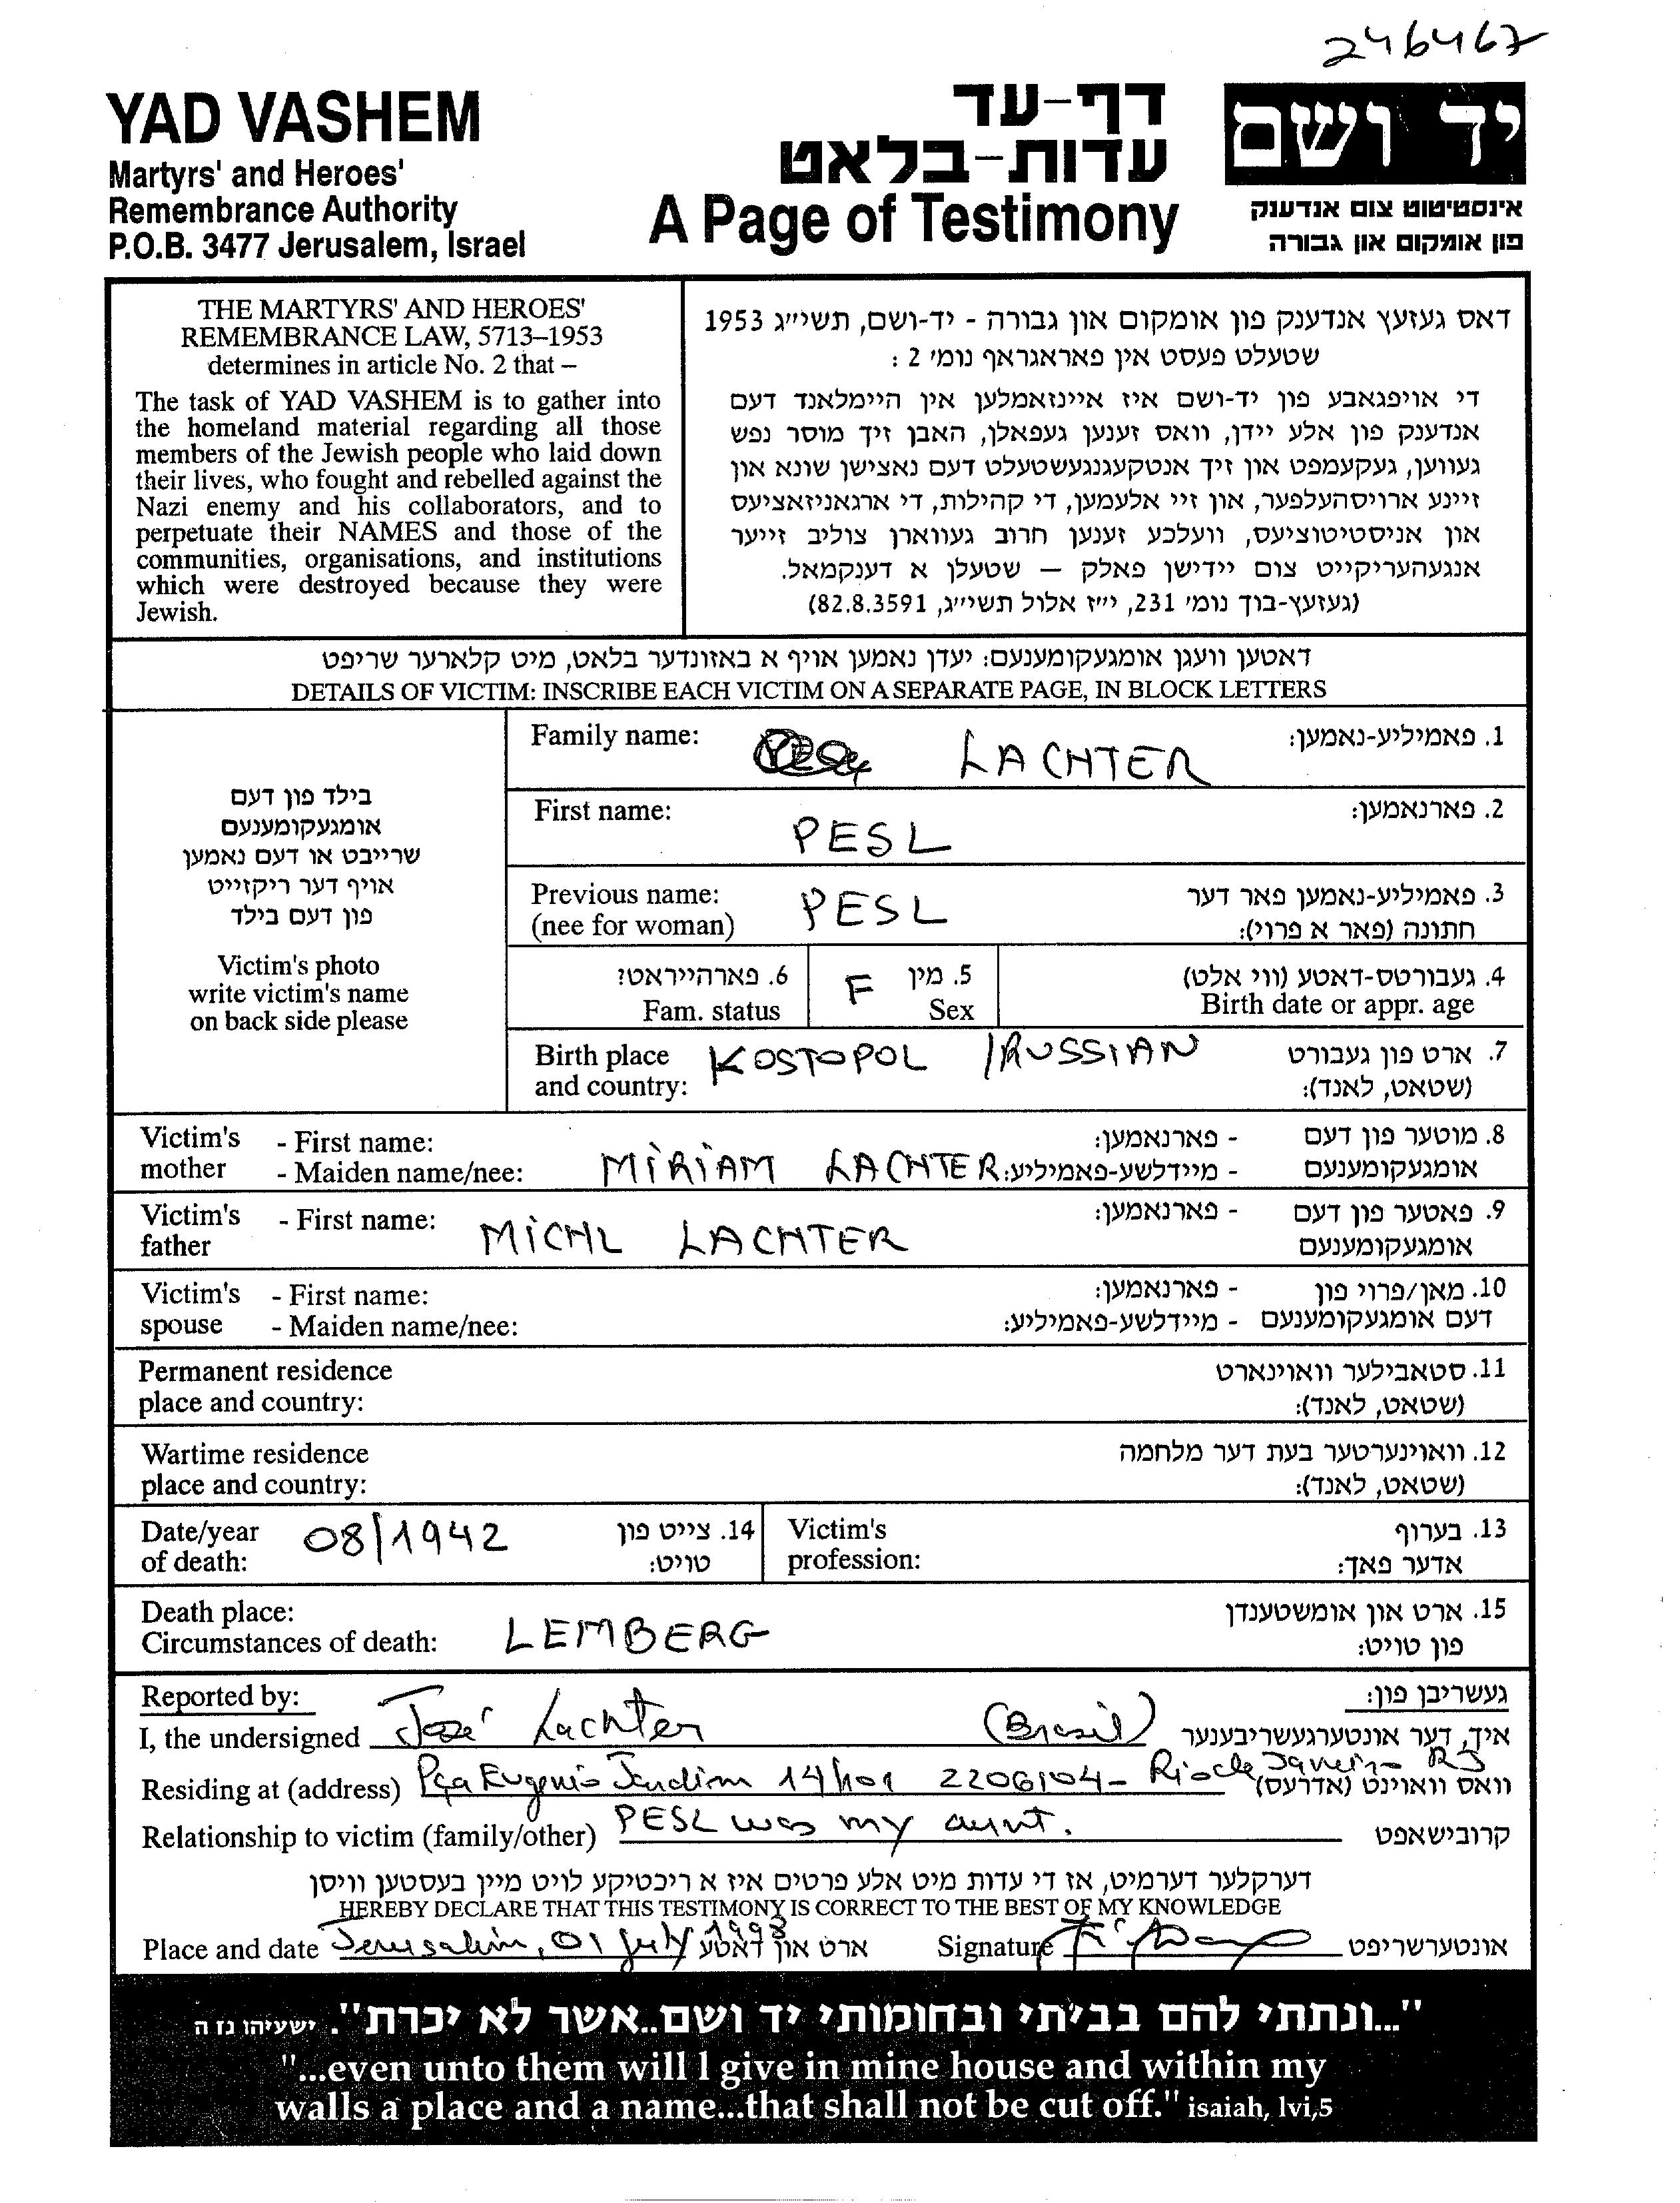 246467
YAD VASHEM
Martyrs' and Heroes'
Remembrance Authority
P.O.B. 3477 Jerusalem, Israel
דף-עד
עדות-בלאט
A Page of Testimony
יד ושם
אינסטיטוט צום אנדענק
פון אומקום און גבורה
THE MARTYRS' AND HEROES'
REMEMBRANCE LAW, 5713–1953
determines in article No. 2 that –
The task of YAD VASHEM is to gather into
the homeland material regarding all those
members of the Jewish people who laid down
their lives, who fought and rebelled against the
Nazi enemy and his collaborators, and to
perpetuate their NAMES and those of the
communities, organisations, and institutions
which were destroyed because they were
Jewish.
דאס געזעץ אנדענק פון אומקום און גבורה - יד-ושם, תשי״ג 1953
שטעלט פעסט אין פאראגראף נומ׳ 2 :
די אויפגאבע פון יד-ושם איז איינזאמלען אין היימלאנד דעם
אנדענק פון אלע יידן, וואס זענען געפאלן, האבן זיך מוסר נפש
געווען, געקעמפט און זיך אנטקעגנגעשטעלט דעם נאצישן שונא און
זיינע ארויסהעלפער, און זיי אלעמען, די קהילות, די ארגאניזאציעס
און אניסטיטוציעס, וועלכע זענען חרוב געווארן צוליב זייער
אנגעהעריקייט צום יידישן פאלק — שטעלן א דענקמאל.
(געזעץ-בוך נומ׳ 231, י״ז אלול תשי״ג, 82.8.3591)
דאטען וועגן אומגעקומענעם: יעדן נאמען אויף א באזונדער בלאט, מיט קלארער שריפט
DETAILS OF VICTIM: INSCRIBE EACH VICTIM ON A SEPARATE PAGE, IN BLOCK LETTERS
בילד פון דעם
אומגעקומענעם
שרייבט או דעם נאמען
אויף דער ריקזייט
פון דעם בילד
Victim's photo
write victim's name
on back side please
Family name: LACHTER 1. פאמיליע-נאמען:
First name: PESL 2. פארנאמען:
Previous name: PESL 3. פאמיליע-נאמען פאר דער
(nee for woman) חתונה (פאר א פרוי):
6. פארהייראט? F 5. מין 4. געבורטס-דאטע (ווי אלט)
Fam. status Sex Birth date or appr. age
Birth place KOSTOPOL /RUSSIAN 7. ארט פון געבורט
and country: (שטאט, לאנד):
Victim's - First name: - פארנאמען: 8. מוטער פון דעם
mother - Maiden name/nee: MIRIAM LACHTER - מיידלשע-פאמיליע: אומגעקומענעם
Victim's - First name: MICHL LACHTER - פארנאמען: 9. פאטער פון דעם
father אומגעקומענעם
Victim's - First name: - פארנאמען: 10. מאן/פרוי פון
spouse - Maiden name/nee: - מיידלשע-פאמיליע: דעם אומגעקומענעם
Permanent residence 11. סטאבילער וואוינארט
place and country: (שטאט, לאנד):
Wartime residence 12. וואוינערטער בעת דער מלחמה
place and country: (שטאט, לאנד):
Date/year 08/1942 14. צייט פון Victim's 13. בערוף
of death: טויט: profession: אדער פאך:
Death place: 15. ארט און אומשטענדן
Circumstances of death: LEMBERG פון טויט:
Reported by: געשריבן פון:
I, the undersigned José Lachter (Brasil) איך, דער אונטערגעשריבענער
Residing at (address) Pça Eugenio Jardim 14/1101 2206104- Rio de Janeiro RJ וואס וואוינט (אדרעס)
Relationship to victim (family/other) PESL was my aunt. קרובישאפט
דערקלער דערמיט, אז די עדות מיט אלע פרטים איז א ריכטיקע לויט מיין בעסטען וויסן
HEREBY DECLARE THAT THIS TESTIMONY IS CORRECT TO THE BEST OF MY KNOWLEDGE
Place and date Jerusalim, 01 July 1998 ארט און דאטע Signature אונטערשריפט
"...ונתתי להם בביתי ובחומותי יד ושם..אשר לא יכרת". ישעיהו נז ה
"...even unto them will I give in mine house and within my
walls a place and a name...that shall not be cut off." isaiah, lvi,5